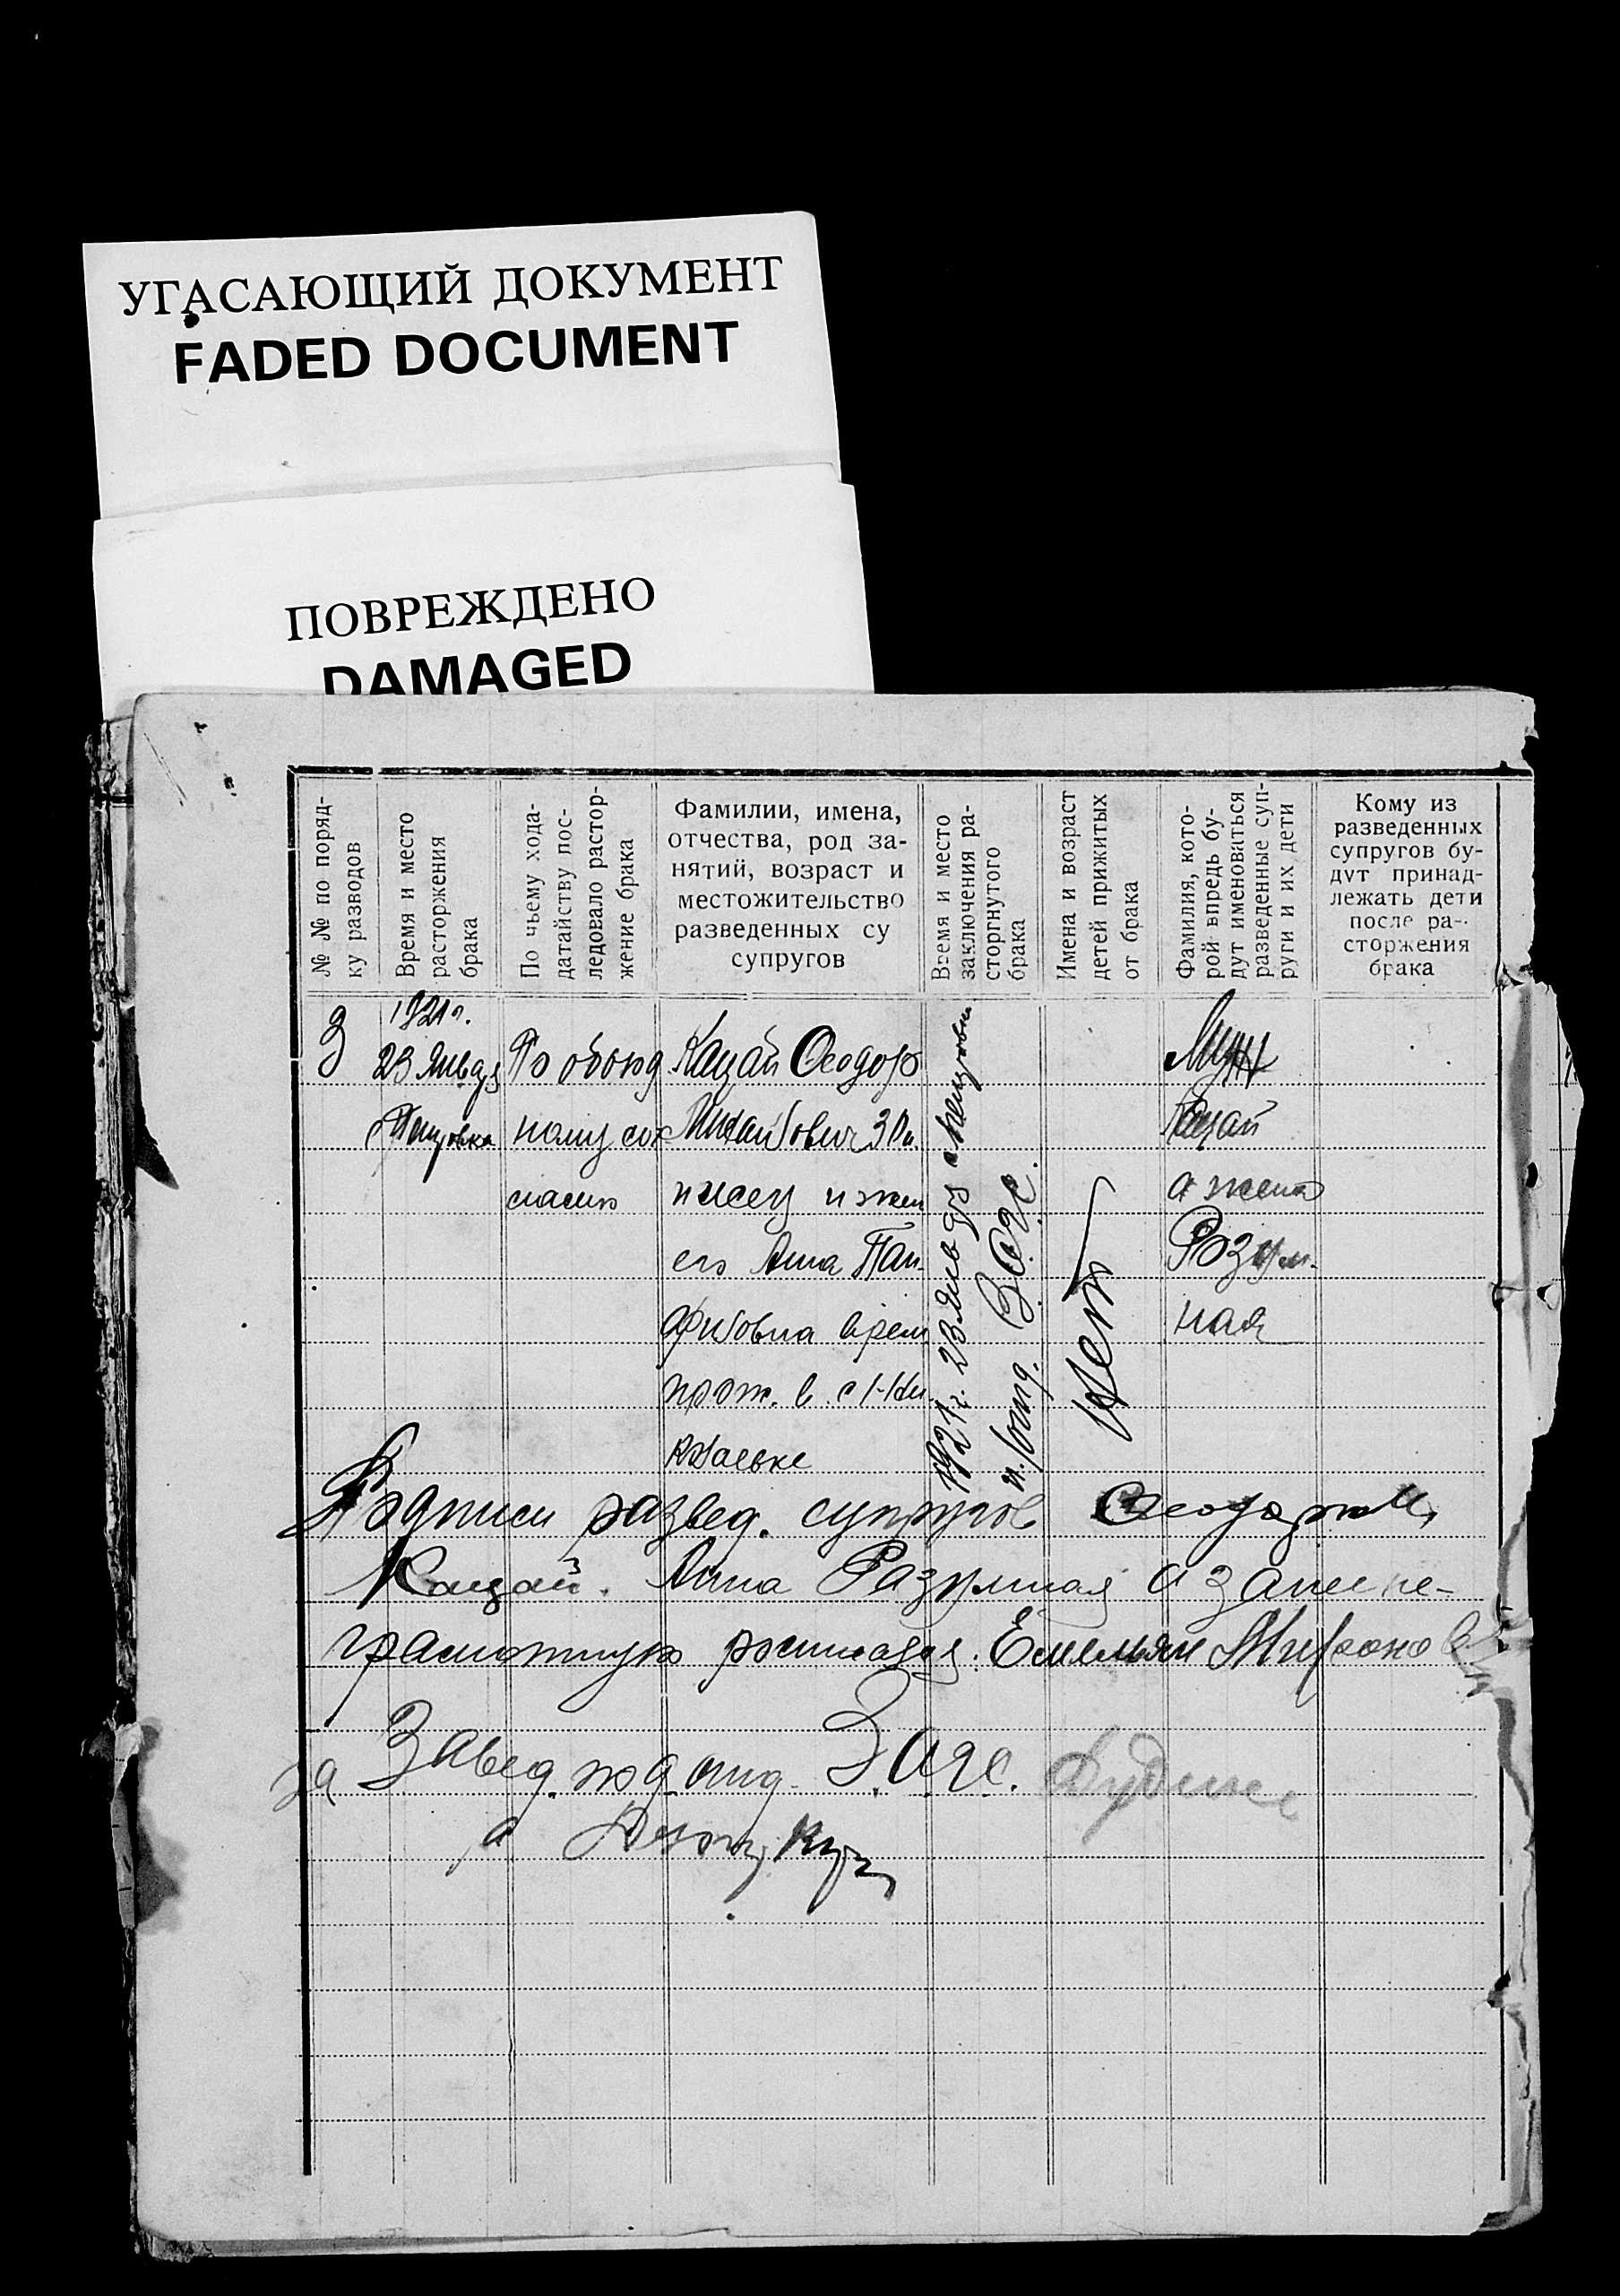 УГАСАЮЩИЙ ДОКУМЕНТ
FADED DOCUMENT
ПОВРЕЖДЕНО
DAMAGED
№ № по поряд-
ку разводов
Время и место
расторжения
брака
По чьему хода-
датайству пос-
ледовало растор-
жение брака
Фамилии, имена,
отчества, род за-
нятий, возраст и
местожительство
разведенных су
супругов
Время и место
заключения ра-
сторгнутого
брака
Имена и возраст
детей прижитых
от брака
Фамилия, кото-
рой впредь бу-
дут именоваться
разведенные суп-
руги и их дети
Кому из
разведенных
супругов бу-
дут принад-
лежать дети
после ра-
сторжения
брака
3
1921 г.
23 Января
По обоюд
ному сог
ласию
Кацай Феодор
Михайлович 30 л.
и жен
его Анна Пан-
филовна врем
прож. в с
1921 г. 23 Января
З.А.Г.С.
Нет
Муж
Кацай
а жена
Розум-
ная
Подписи развед. супругов Феодор
Кацай. Анна Разумная а за нее не-
грамотную росписался Емельян Миронов
за Завед. подотд. З.А.Г.С.